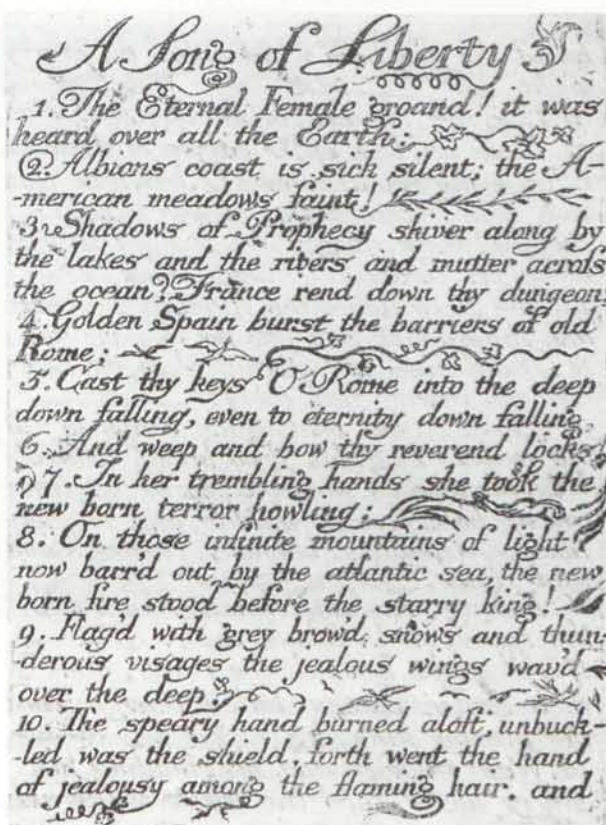 A Song of Liberty
1. The Eternal Female groand! it was
heard over all the Earth:
2. Albions coast is sick silent; the A-
-merican meadows faint!
3 Shadows of Prophecy shiver along by
the lakes and the rivers and mutter across
the ocean? France rend down thy dungeon
4. Golden Spain burst the barriers of old
Rome;
5. Cast thy keys O Rome into the deep
down falling, even to eternity down falling
6. And weep and bow thy reverend locks
7. In her trembling hands she took the
new born terror howling:
8. On those infinite mountains of light
now barr'd out by the atlantic sea, the new
born fire stood before the starry king!
9. Flag'd with grey brow'd snows and thun
-derous visages the jealous wings wav'd
over the deep.
10. The speary hand burned aloft, unbuck-
-led was the shield, forth went the hand
of jealousy among the flaming hair. and